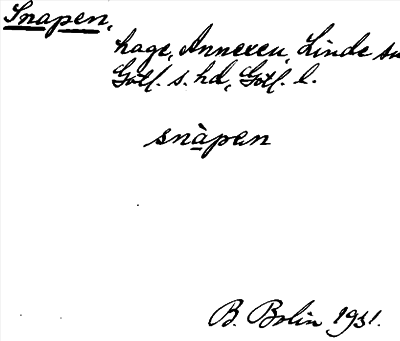 Snapen,
hage, Annexen, Linde sn
Gotl. s. hd, Gotl. l.
snàpen
B. Bolin 1931.